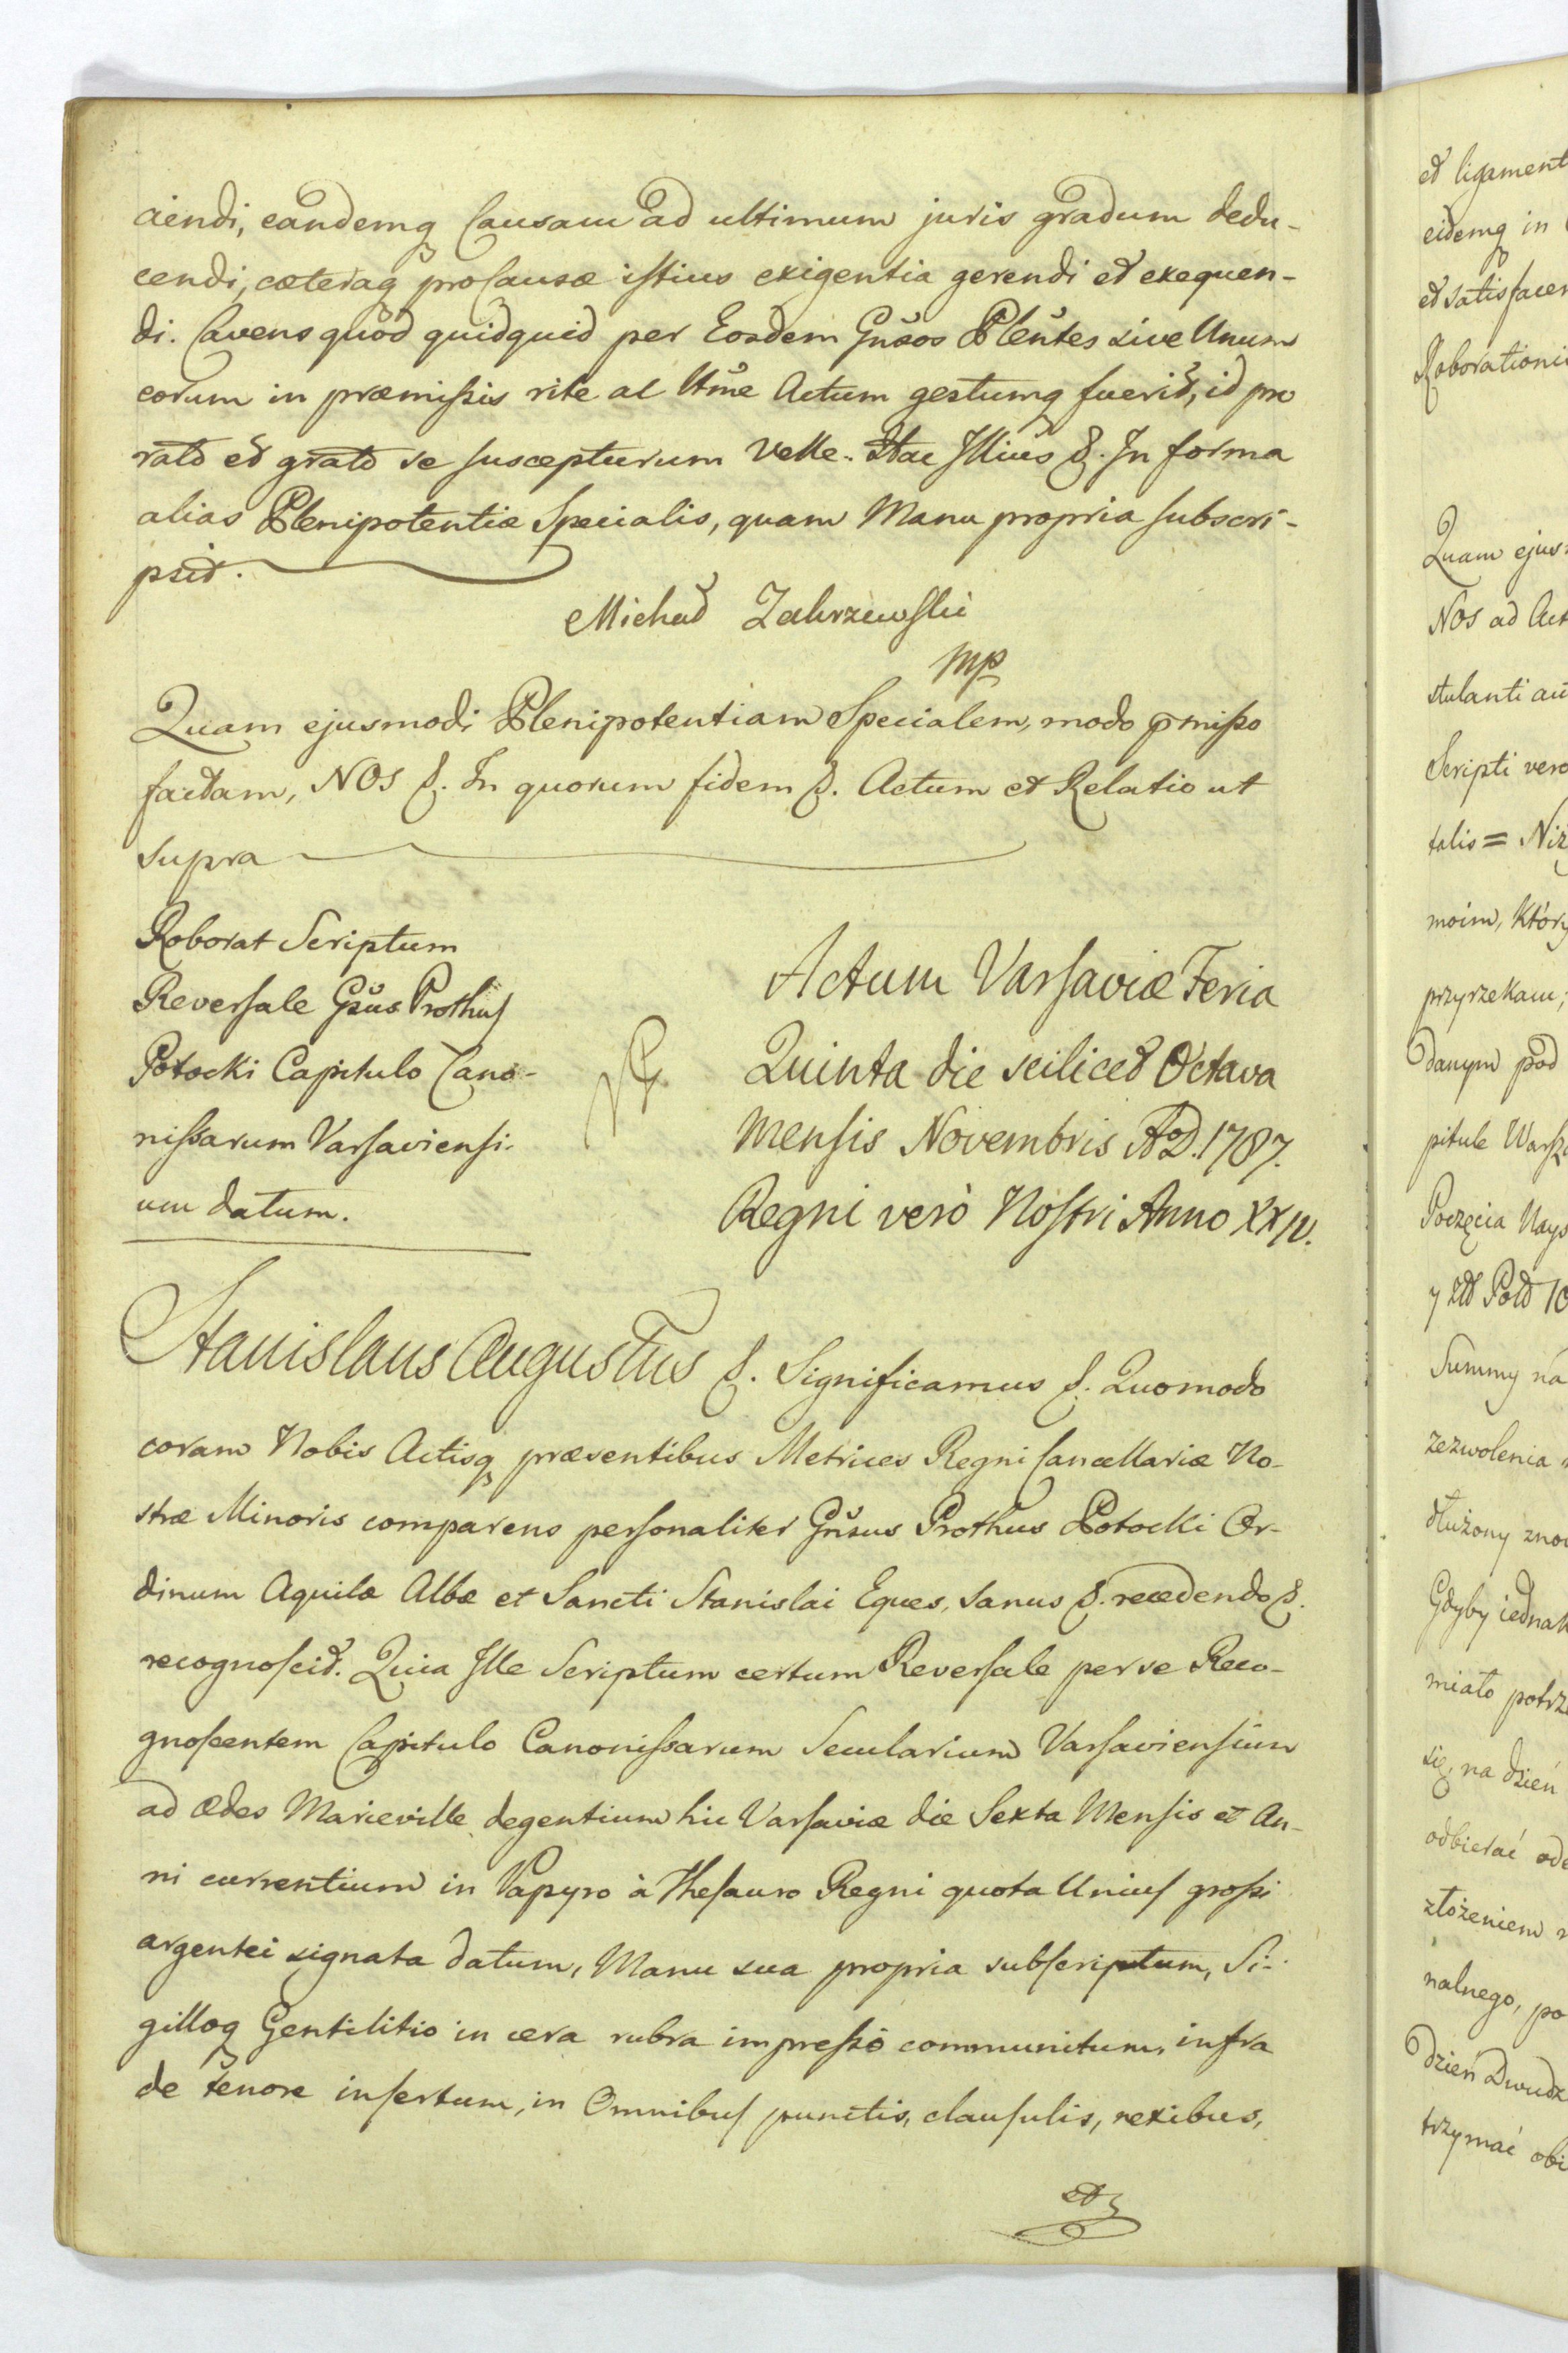 ciendi, eandemq̃ Causam ad ultimum juris gradum dedu-
cendi, cæteraq̃ pro Causæ istius exigentia gerendi et exequen-
di. Cavens quòd quidquid per Eosdem Gñsos Plẽntes sive Unum
eorum in præmissis rite ac ltme Actum gestumq̃ fuerit, id pro
rato et grato se suscepturum velle. Hac Illius &. In forma
alias Plenipotentiæ Specialis, quam Manu propria subscri-
psit.
Michał Zakrzewski
mp
Quam ejusmodi Plenipotentiam Specialem, modo p̄misso
factam, NOS &. In quorum fidem &. Actum et Relatio ut
supra
Roborat Scriptum
Reversale Gsus Prothus
Potocki Capitulo Cano-
nissarum Varsaviensi-
um datum.
Actum Varsaviæ Feria
Quinta die scilicet Octava
Mensis Novembris AoD. 1787.
Regni verò Nostri Anno XXIV.
Stanislaus Augustus &. Significamus &. Quomodo
coram Nobis Actisq̃ præsentibus Metrices Regni Cancellariæ No-
stræ Minoris comparens personaliter Gñsus Prothus Potocki Or-
dinum Aquilæ Albæ et Sancti Stanislai Eques, sanus &. recedendo &.
recognoscit. Quia Ille Scriptum certum Reversale per se Reco-
gnoscentem Capitulo Canonissarum Secularium Varsaviensium
ad Ædes Marieville degentium hic Varsaviæ die Sexta Mensis et An-
ni currentium in Papyro à Thesauro Regni quota Unius grossi
argentei signata datum, Manu sua propria subscriptum, Si-
gilloq̃ Gentilitio in cera rubra impresso communitum, infra
de tenore insertum, in Omnibus punctis, clausulis, nexibus,
et ligament
eidemq̃ in
et satisfacen
Roborationi
Quam ejus
NOS ad Act
stulanti au
Scripti vero
talis = Niż
moim, który
przyrzekam;
danym pod
pitule Warsz
Poczęcia Nays
y złł Poł 10
Summy na
zezwolenia
dłużony zno
Gdyby iednak
miało potrz
się, na dzień
odbierać ode
złożeniem
nalnego, po
dzień Dwudz
trzymać obi